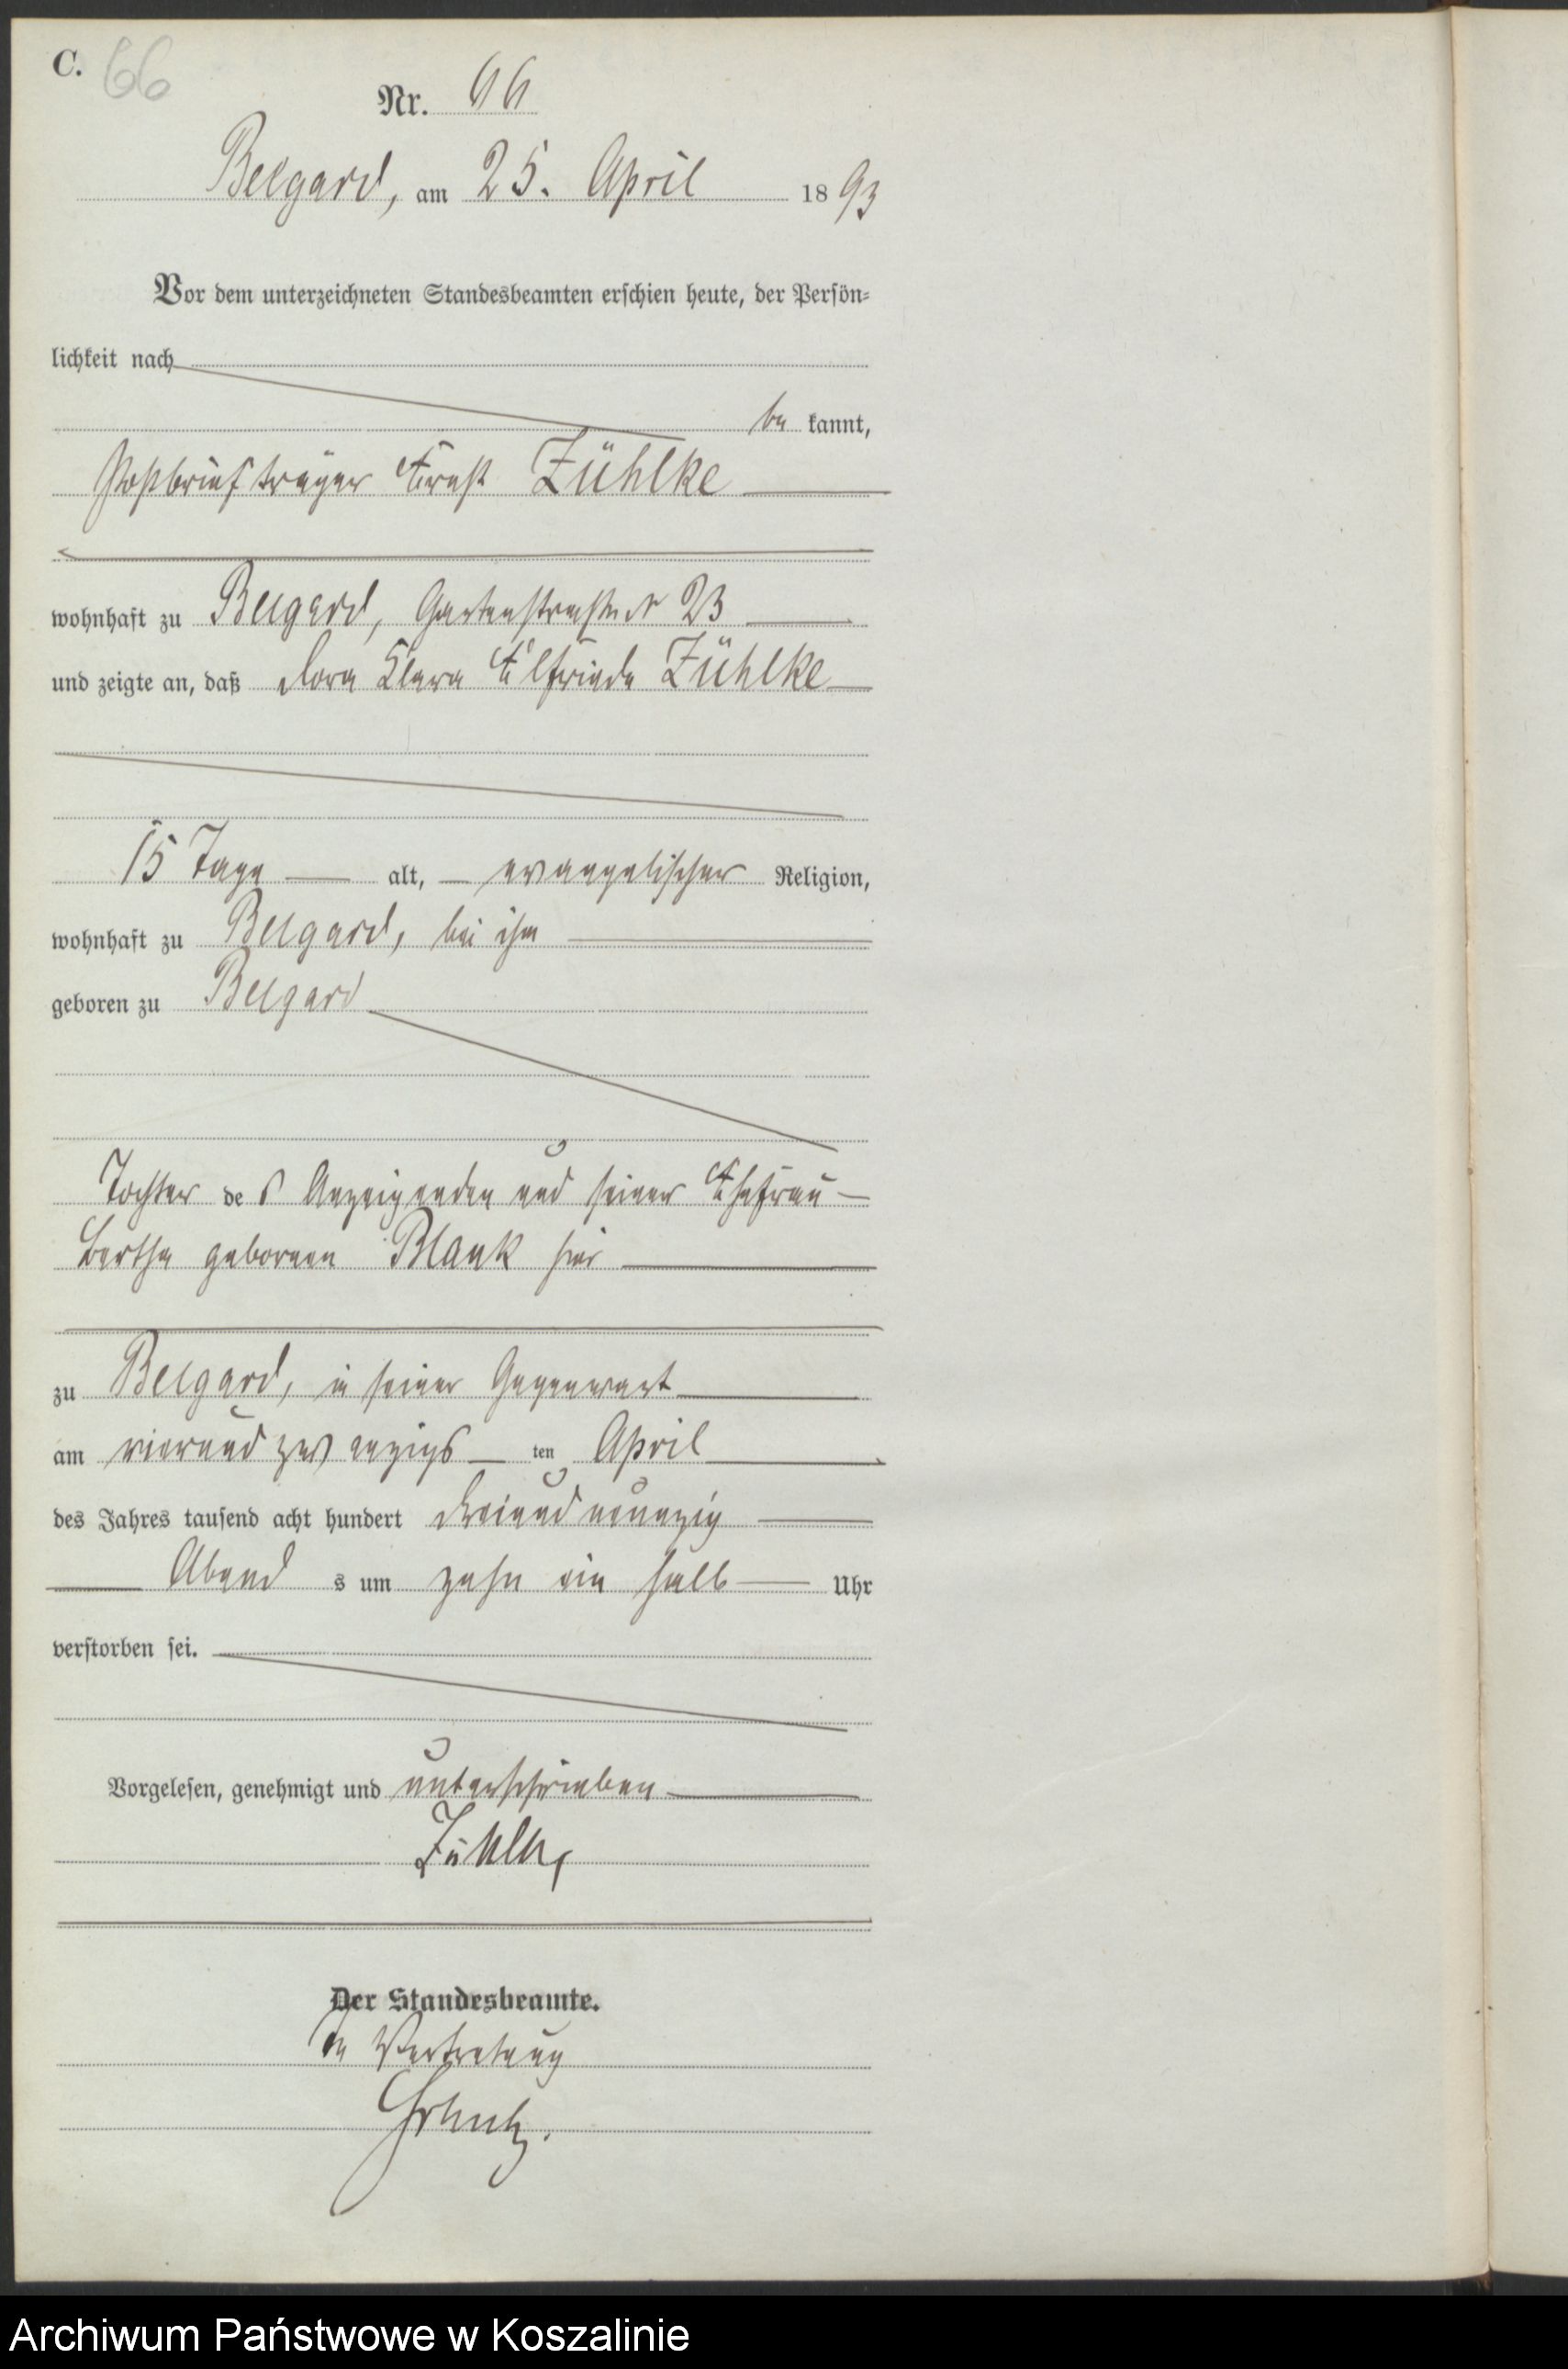 C. 66
Nr. 66
Belgard, am 25. April 1893
Vor dem unterzeichneten Standesbeamten erschien heute, der Persön-
lichkeit nach
be kannt,
Postbriefträger Ernst Zühlke
wohnhaft zu Belgard, Gartenstraße № 23
und zeigte an, daß Dora Clara Elfriede Zühlke
15 Tage alt, evangelischer Religion,
wohnhaft zu Belgard, bei ihm
geboren zu Belgard
Tochter des Anzeigenden und seiner Ehefrau
Bertha geborenen Blank hier
zu Belgard, in seiner Gegenwart
am vierundzwanzigsten April
des Jahres tausend acht hundert dreiundneunzig
Abends um zehn ein halb Uhr
verstorben sei.
Vorgelesen, genehmigt und unterschrieben
Zühlke
Der Standesbeamte.
In Vertretung
Archiwum Państwowe w Koszalinie